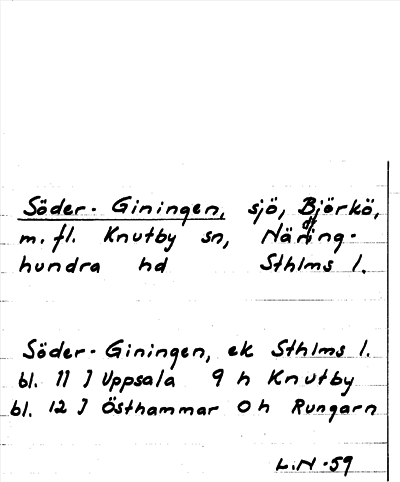 Söder-Giningen, sjö, Björkö,
m.fl. Knutby sn, Närding-
hundra hd Sthlms l.
Söder-Giningen, ek Sthlms l.
bl. 11 I Uppsala 9 h Knutby
bl. 12 I Östhammar 0 h Rungarn
L.N-59